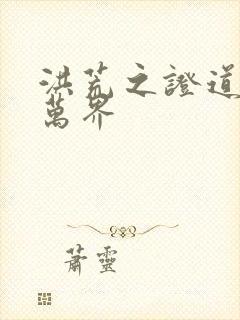 洪荒之證道
萬界
蕭靈